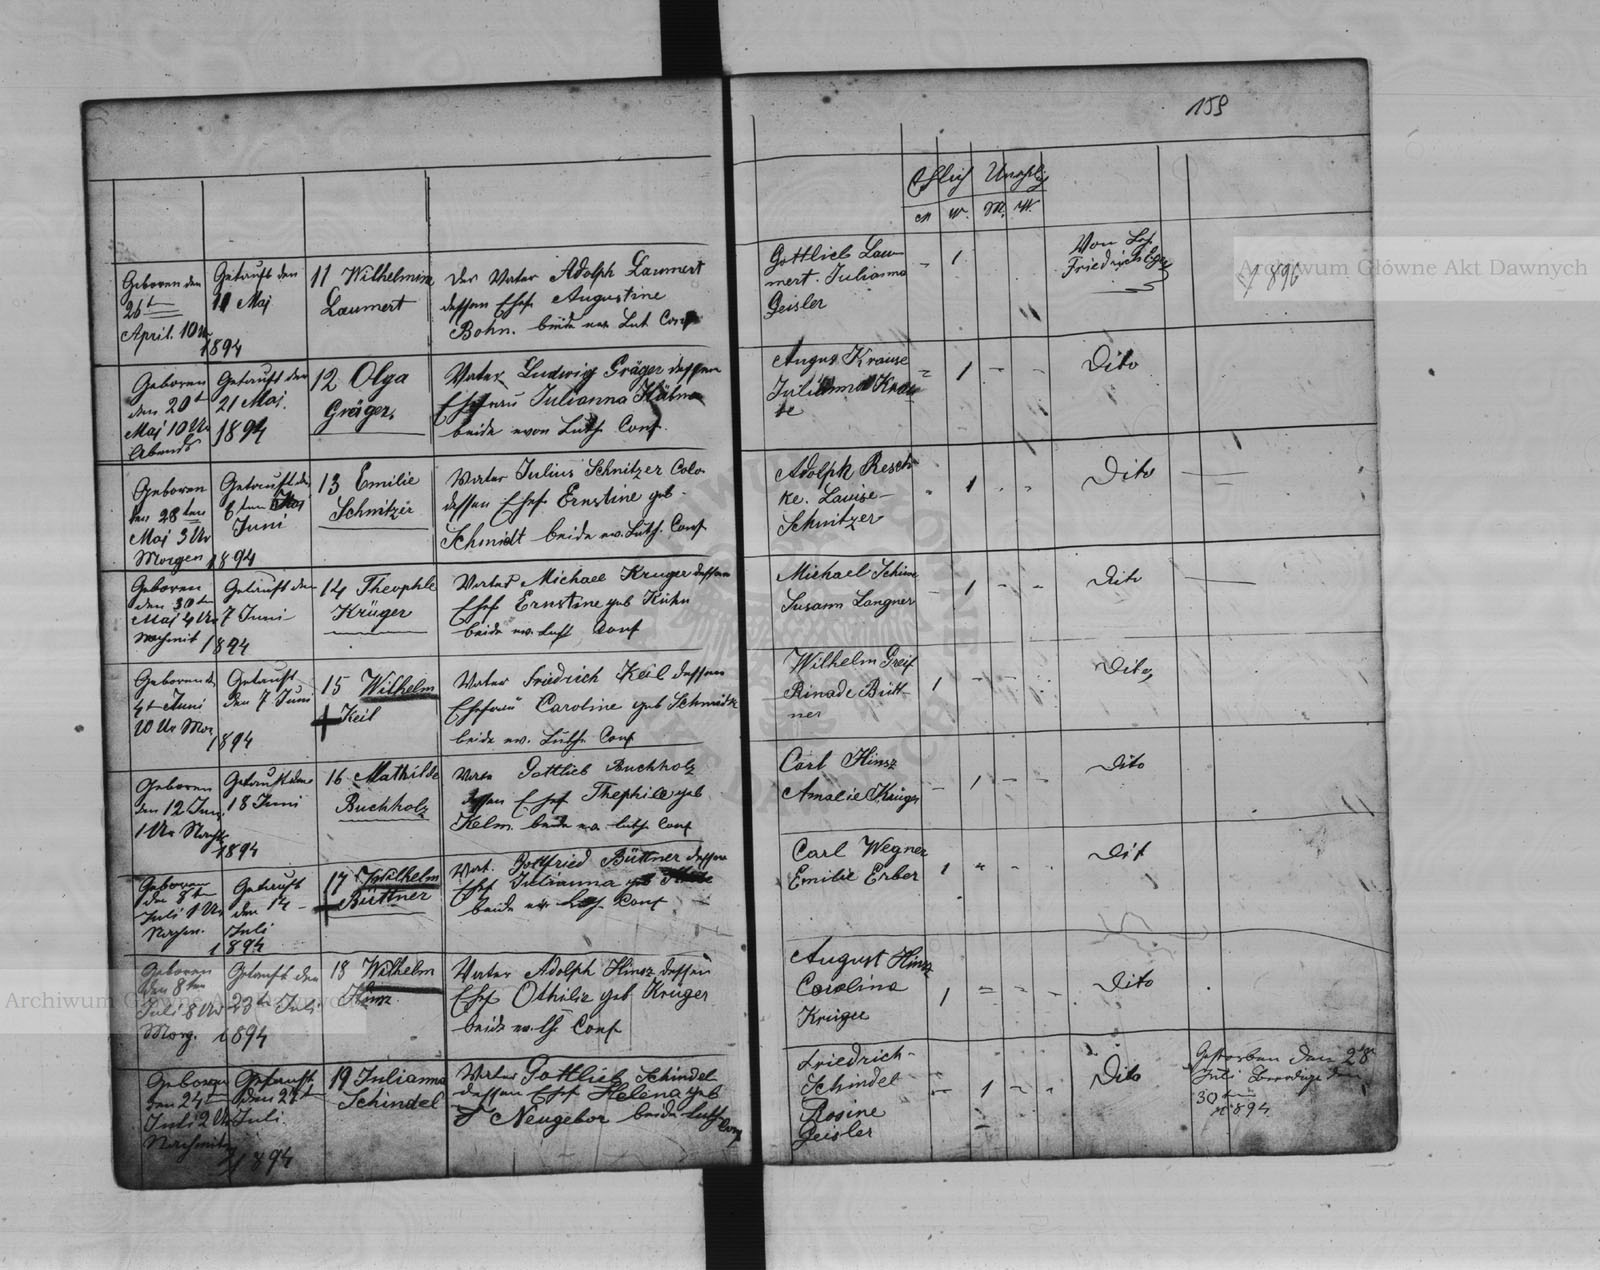 159
Ehlich Unehlich
M. W. M. W.
Geboren den
26t
April. 10 Ur
1894
Getauft den
11 Maj
11 Wilhelmine
Laumert
Der Vater Adolph Laumert
dessen Ehef Augustine
Bohn. beide ev Lut Conf
Gottlieb Lau-
mert. Julianna
Geisler
- 1
Von Kol.
1896
Geboren
den 20t
Maj 10 Ur
Abends
Getauft den
21 Maj.
1894
12 Olga
Gräger
Vater Ludwig Gräger dessen
Ehefrau Julianna
beide evon Luth Conf.
August Krause
Julianna Krau-
se
- 1 - -
Dito
Geboren
den 28ten
Maj 3 Ur
Morgen 1894
Getauft den
6ten
Juni
13 Emilie
Schnitzer
Vater Julius Schnitzer Colo.
dessen Ehef Ernstine geb
Schmidt beide ev. Luth. Conf
Adolph Resch-
ke. Lauise
Schnitzer
- 1 - -
Dito
Geboren
den 30t
Maj 4 Ur
Nachmit 1894
Getauft den
7 Juni
14 Theophile
Krüger
Vater Michael Kruger dessen
Ehef Ernstine geb Kühn
beide ev. Luth Conf
Michael Schim
Susann Langner
- 1 - -
Dito
Geboren d.
4t Juni
10 Ur Mor
1894
Getauft
den 7 Juni
15 Wilhelm
Keil
Vater Friedrich Keil dessen
Ehefrau Caroline geb Schmidtke
beide ev. Luth. Conf
Wilhelm Greif
Rinade Bütt-
ner
1 - - -
Dito
Geboren
den 12 Juni
1 Ur Nacht
1894
Getauft den
18 Juni
16 Mathilde
Buchholz
Vater Gottlieb Buchholz
dessen Ehef Thephile geb
Kelm. beide ev. Luth. Conf
Carl Hinsz
Amalie Krüger
- 1 - -
Dito
Geboren
den 8ten
Juli 1 Ur
Nachm.
Getauft
den 14
Juli
1894
17 Wilhelm
Büttner
Vat. Gottfried Büttner dessen
Ehef Julianna geb
beide ev Luth. Conf
Carl Wegner
Emilie Erber
1 - - -
Dit
Geboren
den 8ten
Juli 8 Ur
Morg. 1894
Getauft den
23t Juli
18 Wilhelm
Hinsz.
Vater Adolph Hinsz dessen
Ehef Othilie geb Krüger
beide ev. Conf
August Hinsz
Carolina
Krüger
1 - - -
Dito
Geboren
den 24t
Juli 2 Ur
Nachmitt
1894
Getauft
den 27t
Juli.
19 Julianna
Schindel
Vater Gottlieb Schindel
dessen Ehef Helena geb
Neugebor beide Luth
Conf
Friedrich
Schindel
Rosine
Geisler
- 1 - -
Dito
Gestorben den 28t
Juli
30ten
1894
Archiwum Główne Akt Dawnych
Archiwum Główne Akt Dawnych